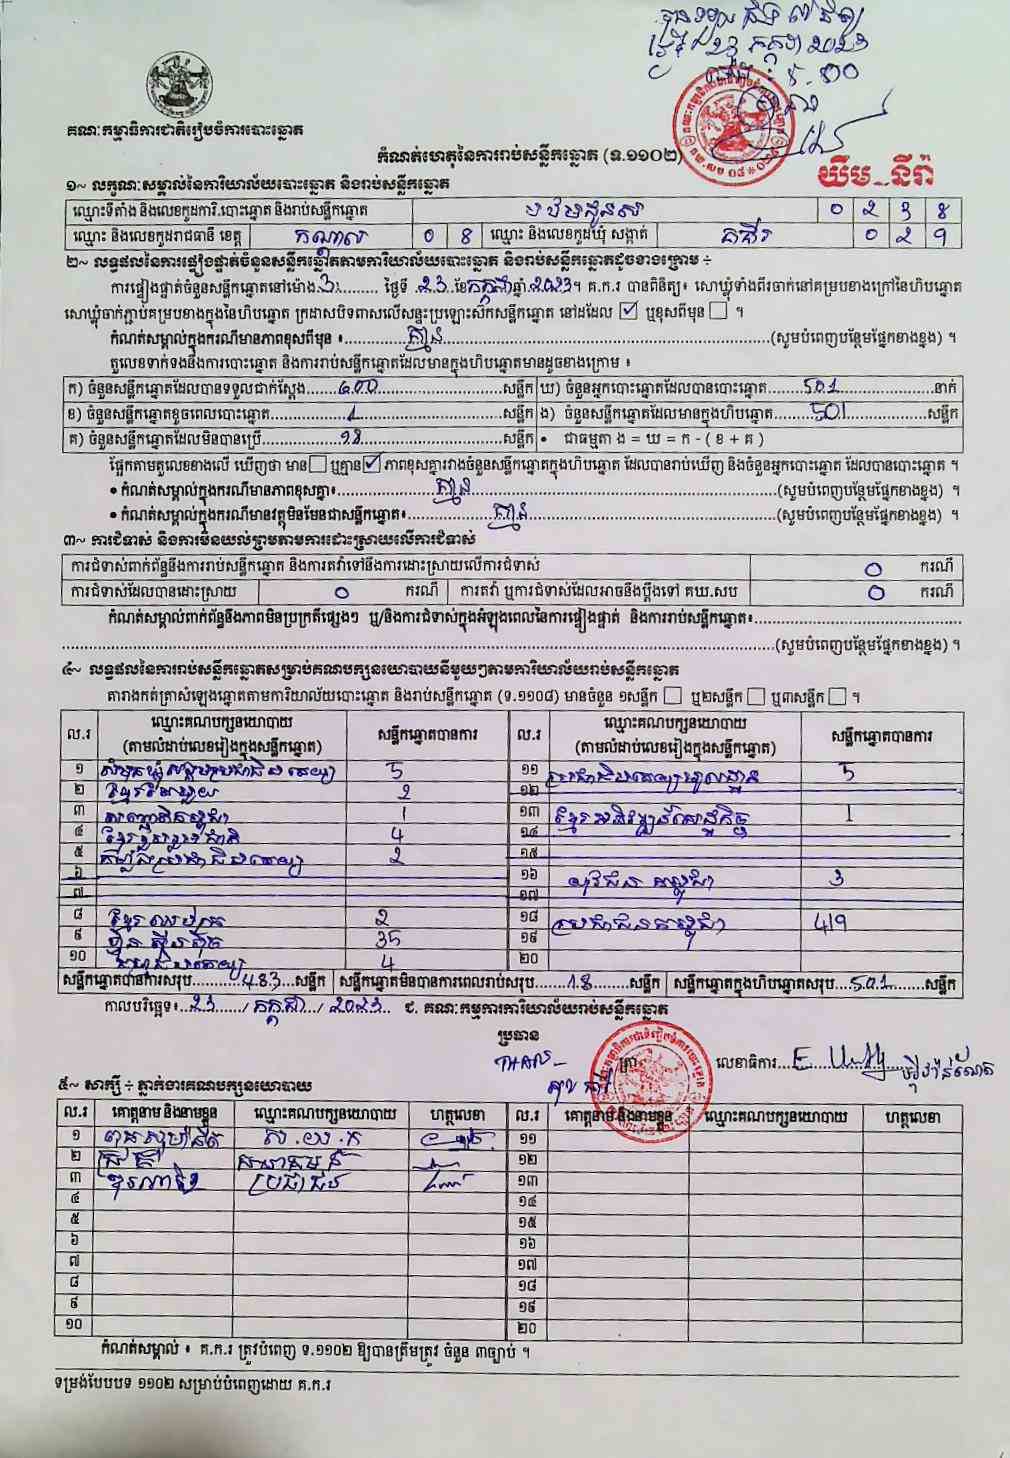 គណៈកម្មាធិការជាតិរៀបចំការបោះឆ្នោត
កំណត់ហេតុនៃការរាប់សន្លឹកឆ្នោត (ទ.១១០២)
យឹម នីរ៉ា
១~ លក្ខណៈសម្គាល់នៃការិយាល័យបោះឆ្នោត និងរាប់សន្លឹកឆ្នោត
ឈ្មោះទីតាំង និងលេខកូដការិ.បោះឆ្នោត និងរាប់សន្លឹកឆ្នោត 0 2 3 ៥
ឈ្មោះ និងលេខកូដរាជធានី ខេត្ត កណ្តាល 0 8 ឈ្មោះ និងលេខកូដឃុំ សង្កាត់ 0 2 9
២~ លទ្ធផលនៃការផ្ទៀងផ្ទាត់ចំនួនសន្លឹកឆ្នោតតាមការិយាល័យបោះឆ្នោត និងរាប់សន្លឹកឆ្នោតដូចខាងក្រោម ៖
ការផ្ទៀងផ្ទាត់ចំនួនសន្លឹកឆ្នោតនៅម៉ោង 3 ថ្ងៃទី 23 ខែ កក្កដា ឆ្នាំ 2023។ គ.ក.រ បានពិនិត្យ៖ សោឃ្លុំទាំងពីរចាក់នៅគម្របខាងក្រៅនៃហិបឆ្នោត
សោឃ្លុំចាក់ភ្ជាប់គម្របខាងក្នុងនៃហិបឆ្នោត ក្រដាសបិទពាសលើសន្ទះប្រឡោះស៊កសន្លឹកឆ្នោត នៅដដែល ☑ ឬខុសពីមុន ☐ ។
កំណត់សម្គាល់ក្នុងករណីមានភាពខុសពីមុន ៖ គ្មាន (សូមបំពេញបន្ថែមផ្នែកខាងខ្នង) ។
តួលេខទាក់ទងនឹងការបោះឆ្នោត និងការរាប់សន្លឹកឆ្នោតដែលមានក្នុងហិបឆ្នោតមានដូចខាងក្រោម ៖
ក) ចំនួនសន្លឹកឆ្នោតដែលបានទទួលជាក់ស្តែង 600 សន្លឹក ឃ) ចំនួនអ្នកបោះឆ្នោតដែលបានបោះឆ្នោត 501 នាក់
ខ) ចំនួនសន្លឹកឆ្នោតខូចពេលបោះឆ្នោត 1 សន្លឹក ង) ចំនួនសន្លឹកឆ្នោតដែលមានក្នុងហិបឆ្នោត 501 សន្លឹក
គ) ចំនួនសន្លឹកឆ្នោតដែលមិនបានប្រើ 98 សន្លឹក • ជាធម្មតា ង = ឃ = ក - ( ខ + គ )
ផ្អែកតាមតួលេខខាងលើ ឃើញថា មាន ☐ ឬគ្មាន ☑ ភាពខុសគ្នារវាងចំនួនសន្លឹកឆ្នោតក្នុងហិបឆ្នោត ដែលបានរាប់ឃើញ និងចំនួនអ្នកបោះឆ្នោត ដែលបានបោះឆ្នោត ។
• កំណត់សម្គាល់ក្នុងករណីមានភាពខុសគ្នា៖ គ្មាន (សូមបំពេញបន្ថែមផ្នែកខាងខ្នង) ។
• កំណត់សម្គាល់ក្នុងករណីមានវត្ថុមិនមែនជាសន្លឹកឆ្នោត៖ គ្មាន (សូមបំពេញបន្ថែមផ្នែកខាងខ្នង) ។
៣~ ការជំទាស់ និងការមិនយល់ព្រមតាមការដោះស្រាយលើការជំទាស់
ការជំទាស់ពាក់ព័ន្ធនឹងការរាប់សន្លឹកឆ្នោត និងការតវ៉ាទៅនឹងការដោះស្រាយលើការជំទាស់ 0 ករណី
ការជំទាស់ដែលបានដោះស្រាយ 0 ករណី ការតវ៉ា ឬការជំទាស់ដែលអាចនឹងប្តឹងទៅ គឃ.សប 0 ករណី
កំណត់សម្គាល់ពាក់ព័ន្ធនឹងភាពមិនប្រក្រតីផ្សេងៗ ឬ/និងការជំទាស់ក្នុងអំឡុងពេលនៃការផ្ទៀងផ្ទាត់ និងការរាប់សន្លឹកឆ្នោត៖
(សូមបំពេញបន្ថែមផ្នែកខាងខ្នង) ។
៤~ លទ្ធផលនៃការរាប់សន្លឹកឆ្នោតសម្រាប់គណបក្សនយោបាយនីមួយៗតាមការិយាល័យរាប់សន្លឹកឆ្នោត
តារាងកត់ត្រាសំឡេងឆ្នោតតាមការិយាល័យបោះឆ្នោត និងរាប់សន្លឹកឆ្នោត (ទ.១១០៨) មានចំនួន ១សន្លឹក ☐ ឬ២សន្លឹក ☐ ឬ៣សន្លឹក ☐ ។
ល.រ ឈ្មោះគណបក្សនយោបាយ (តាមលំដាប់លេខរៀងក្នុងសន្លឹកឆ្នោត) សន្លឹកឆ្នោតបានការ ល.រ ឈ្មោះគណបក្សនយោបាយ (តាមលំដាប់លេខរៀងក្នុងសន្លឹកឆ្នោត) សន្លឹកឆ្នោតបានការ
១ សំបុកឃ្មុំសង្គមប្រជាធិបតេយ្យ 5 ១១ ប្រជាធិបតេយ្យមូលដ្ឋាន 5
២ 2 ១២
៣ 1 ១៣ ខ្មែរអភិវឌ្ឍន៍សេដ្ឋកិច្ច 1
៤ ខ្មែររួបរួមជាតិ 4 ១៤
៥ កម្លាំងប្រជាធិបតេយ្យ 2 ១៥
៦ ១៦ យុវជនកម្ពុជា 3
៧ ១៧
៨ 2 ១៨ ប្រជាជនកម្ពុជា 419
៩ ហ៊្វុនស៊ីនប៉ិច 35 ១៩
១០ 4 ២០
សន្លឹកឆ្នោតបានការសរុប 483 សន្លឹក សន្លឹកឆ្នោតមិនបានការពេលរាប់សរុប 18 សន្លឹក សន្លឹកឆ្នោតក្នុងហិបឆ្នោតសរុប 501 សន្លឹក
កាលបរិច្ឆេទ៖ 23 / កក្កដា / 2023 ជ. គណៈកម្មការការិយាល័យរាប់សន្លឹកឆ្នោត
ប្រធាន
ត្រា លេខាធិការ
៥~ សាក្សី ÷ ភ្នាក់ងារគណបក្សនយោបាយ
ល.រ គោត្តនាម និងនាមខ្លួន ឈ្មោះគណបក្សនយោបាយ ហត្ថលេខា ល.រ គោត្តនាម និងនាមខ្លួន ឈ្មោះគណបក្សនយោបាយ ហត្ថលេខា
១ ១១
២ ១២
៣ ប្រជាជន ១៣
៤ ១៤
៥ ១៥
៦ ១៦
៧ ១៧
៨ ១៨
៩ ១៩
១០ ២០
កំណត់សម្គាល់ ៖ គ.ក.រ ត្រូវបំពេញ ទ.១១០២ ឱ្យបានត្រឹមត្រូវ ចំនួន ៣ច្បាប់ ។
ទម្រង់បែបបទ ១១០២ សម្រាប់បំពេញដោយ គ.ក.រ